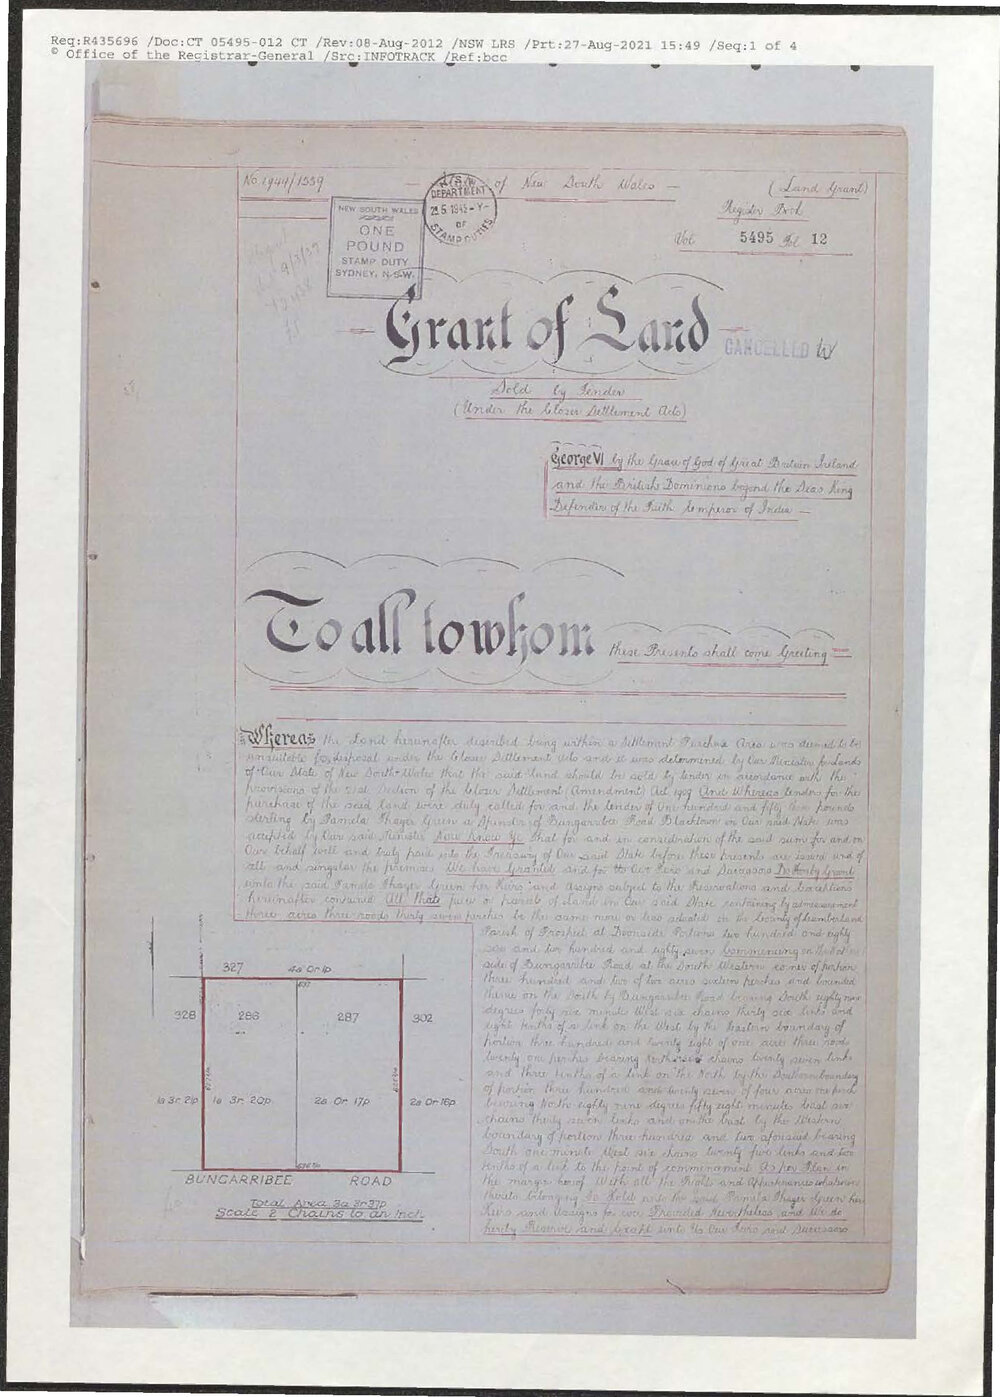 Req:R435696 /Doc:CT 05495-012 CT /Rev:08-Aug-2012 /NSW LRS /Prt:27-Aug-2021 15:49 /Seq:1 of 4
© Office of the Registrar-General /Src:INFOTRACK /Ref:bcc
No. 1944/1559
of New South Wales
(Land Grant)
N.S.W. DEPARTMENT OF STAMP DUTIES
NEW SOUTH WALES
ONE
POUND
STAMP DUTY
SYDNEY, N.S.W.
Register Book
Vol. 5495 Fol 12
Grant of Land
CANCELLED
Sold by Tender
(Under the Closer Settlement Acts)
George VI by the Grace of God of Great Britain Ireland
and the British Dominions beyond the Seas King
Defender of the Faith Emperor of India
To all to whom these Presents shall come Greeting
Whereas the Land hereinafter described being within a Settlement Purchase Area was deemed to be
unsuitable for disposal under the Closer Settlement Acts and it was determined by Our Minister for Lands
of Our State of New South Wales that the said land should be sold by tender in accordance with the
provisions of the Section of the Closer Settlement (Amendment) Act 1909 And Whereas tenders for the
purchase of the said land were duly called for and the tender of One hundred and fifty pounds
sterling by Pamela Thayer Green a Spinster of Bungarribee Road Blacktown in Our said State was
accepted by Our said Minister Now Know Ye that for and in consideration of the said sum for and on
Our behalf well and truly paid into the Treasury of Our said State before these presents are issued and of
all and singular the premises We have Granted and for Us Our Heirs and Successors Do Hereby Grant
unto the said Pamela Thayer Green her Heirs and Assigns subject to the Reservations and Exceptions
hereinafter contained All that piece or parcel of land in Our said State containing by admeasurement
three acres three roods thirty seven perches be the same more or less situated in the County of Cumberland
Parish of Prospect at Doonside Portions two hundred and eighty
six and two hundred and eighty seven Commencing on the
side of Bungarribee Road at the South Western corner of portion
three hundred and two of two acres sixteen perches and bounded
thence on the South by Bungarribee Road bearing South eighty nine
degrees forty six minutes West six chains thirty six links and
eight tenths of a link on the West by the Eastern boundary of
portion three hundred and twenty eight of one acre three roods
twenty one perches bearing North six chains twenty seven links
and three tenths of a link on the North by the Southern boundary
of portion three hundred and twenty seven of four acres one perch
bearing North eighty nine degrees fifty eight minutes East six
chains thirty seven links and on the East by the Western
boundary of portion three hundred and two aforesaid bearing
South one minute West six chains twenty five links and two
tenths of a link to the point of commencement As per Plan in
the margin hereof With all the Rights and Appurtenances whatsoever
thereto belonging To Hold unto the said Pamela Thayer Green her
Heirs and Assigns for ever Provided Nevertheless and We do
hereby Reserve and Except unto Us Our Heirs and Successors
327
4a 0r 1p
328
286
287
302
1a 3r 21p
1a 3r 20p
2a 0r 17p
2a 0r 16p
BUNGARRIBEE ROAD
Total Area 3a 3r 37p
Scale 2 Chains to an Inch